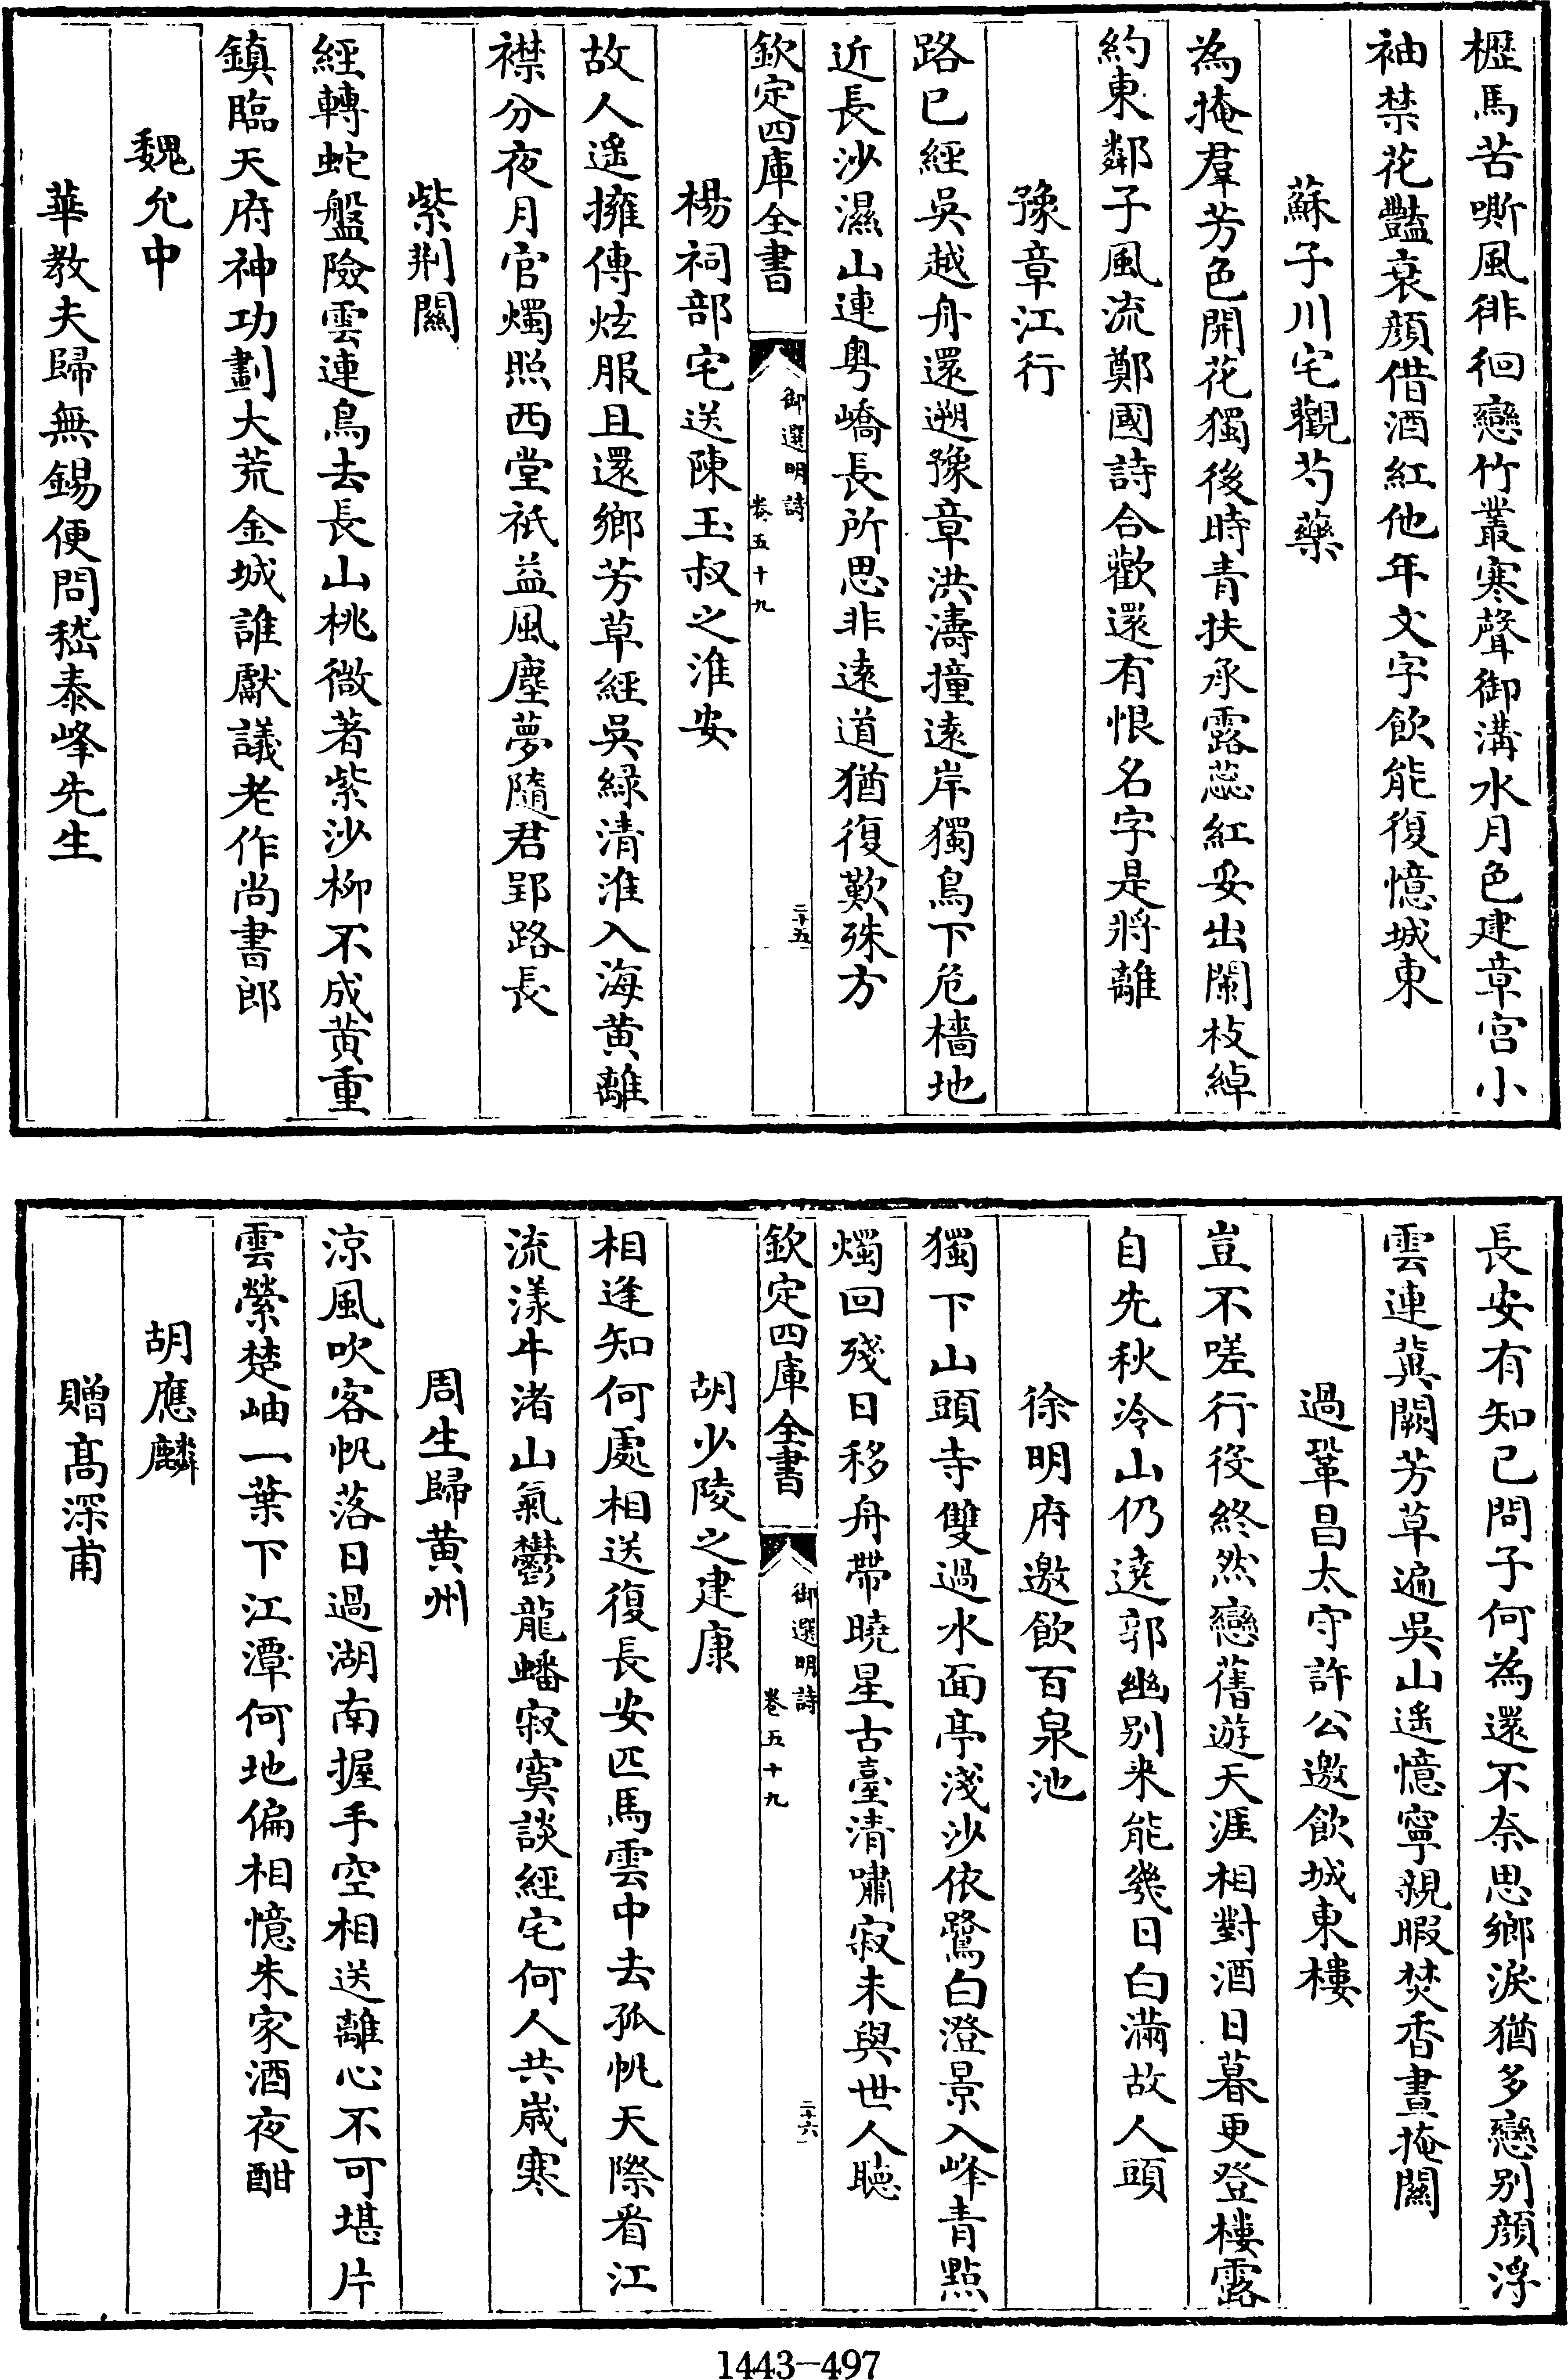 櫪馬苦嘶風徘徊戀竹叢寒聲御溝水月色建章宫小
袖禁花豔衰顔借酒紅他年文字飲能復憶城東
蘇子川宅觀芍藥
為掩羣芳色開花獨後時青扶承露蕊紅妥出闌枝綽
約東鄰子風流鄭國詩合歡還有恨名字是將離
豫章江行
路已經吳越舟還遡豫章洪濤撞遠岸獨鳥下危檣地
近長沙濕山連粤嶠長所思非遠道猶復歎殊方
欽定四庫全書
御選明詩
卷五十九
二十五
楊祠部宅送陳玉叔之淮安
故人遥擁傳炫服且還鄉芳草經吳緑清淮入海黄離
襟分夜月官燭照西堂祇益風塵夢隨君郢路長
紫荆關
經轉蛇盤險雲連鳥去長山桃微著紫沙柳不成黄重
鎮臨天府神功劃大荒金城誰獻議老作尚書郎
魏允中
華教夫歸無錫便問嵇泰峰先生
長安有知已問子何為還不奈思鄉淚猶多戀别顔浮
雲連冀闕芳草遍吳山遥憶寧親暇焚香晝掩關
過鞏昌太守許公邀飲城東樓
豈不嗟行役終然戀舊遊天涯相對酒日暮更登樓露
自先秋冷山仍遶郭幽别来能幾日白滿故人頭
徐明府邀飲百泉池
獨下山頭寺雙過水面亭淺沙依鷺白澄景入峰青點
燭回殘日移舟帶曉星古臺清嘯寂未與世人聽
欽定四庫全書
御選明詩
卷五十九
二十六
胡少陵之建康
相逢知何處相送復長安匹馬雲中去孤帆天際看江
流漾牛渚山氣鬱龍蟠寂寞談經宅何人共嵗寒
周生歸黄州
凉風吹客帆落日過湖南握手空相送離心不可堪片
雲縈楚岫一葉下江潭何地偏相憶朱家酒夜酣
胡應麟
贈髙深甫
1443-497